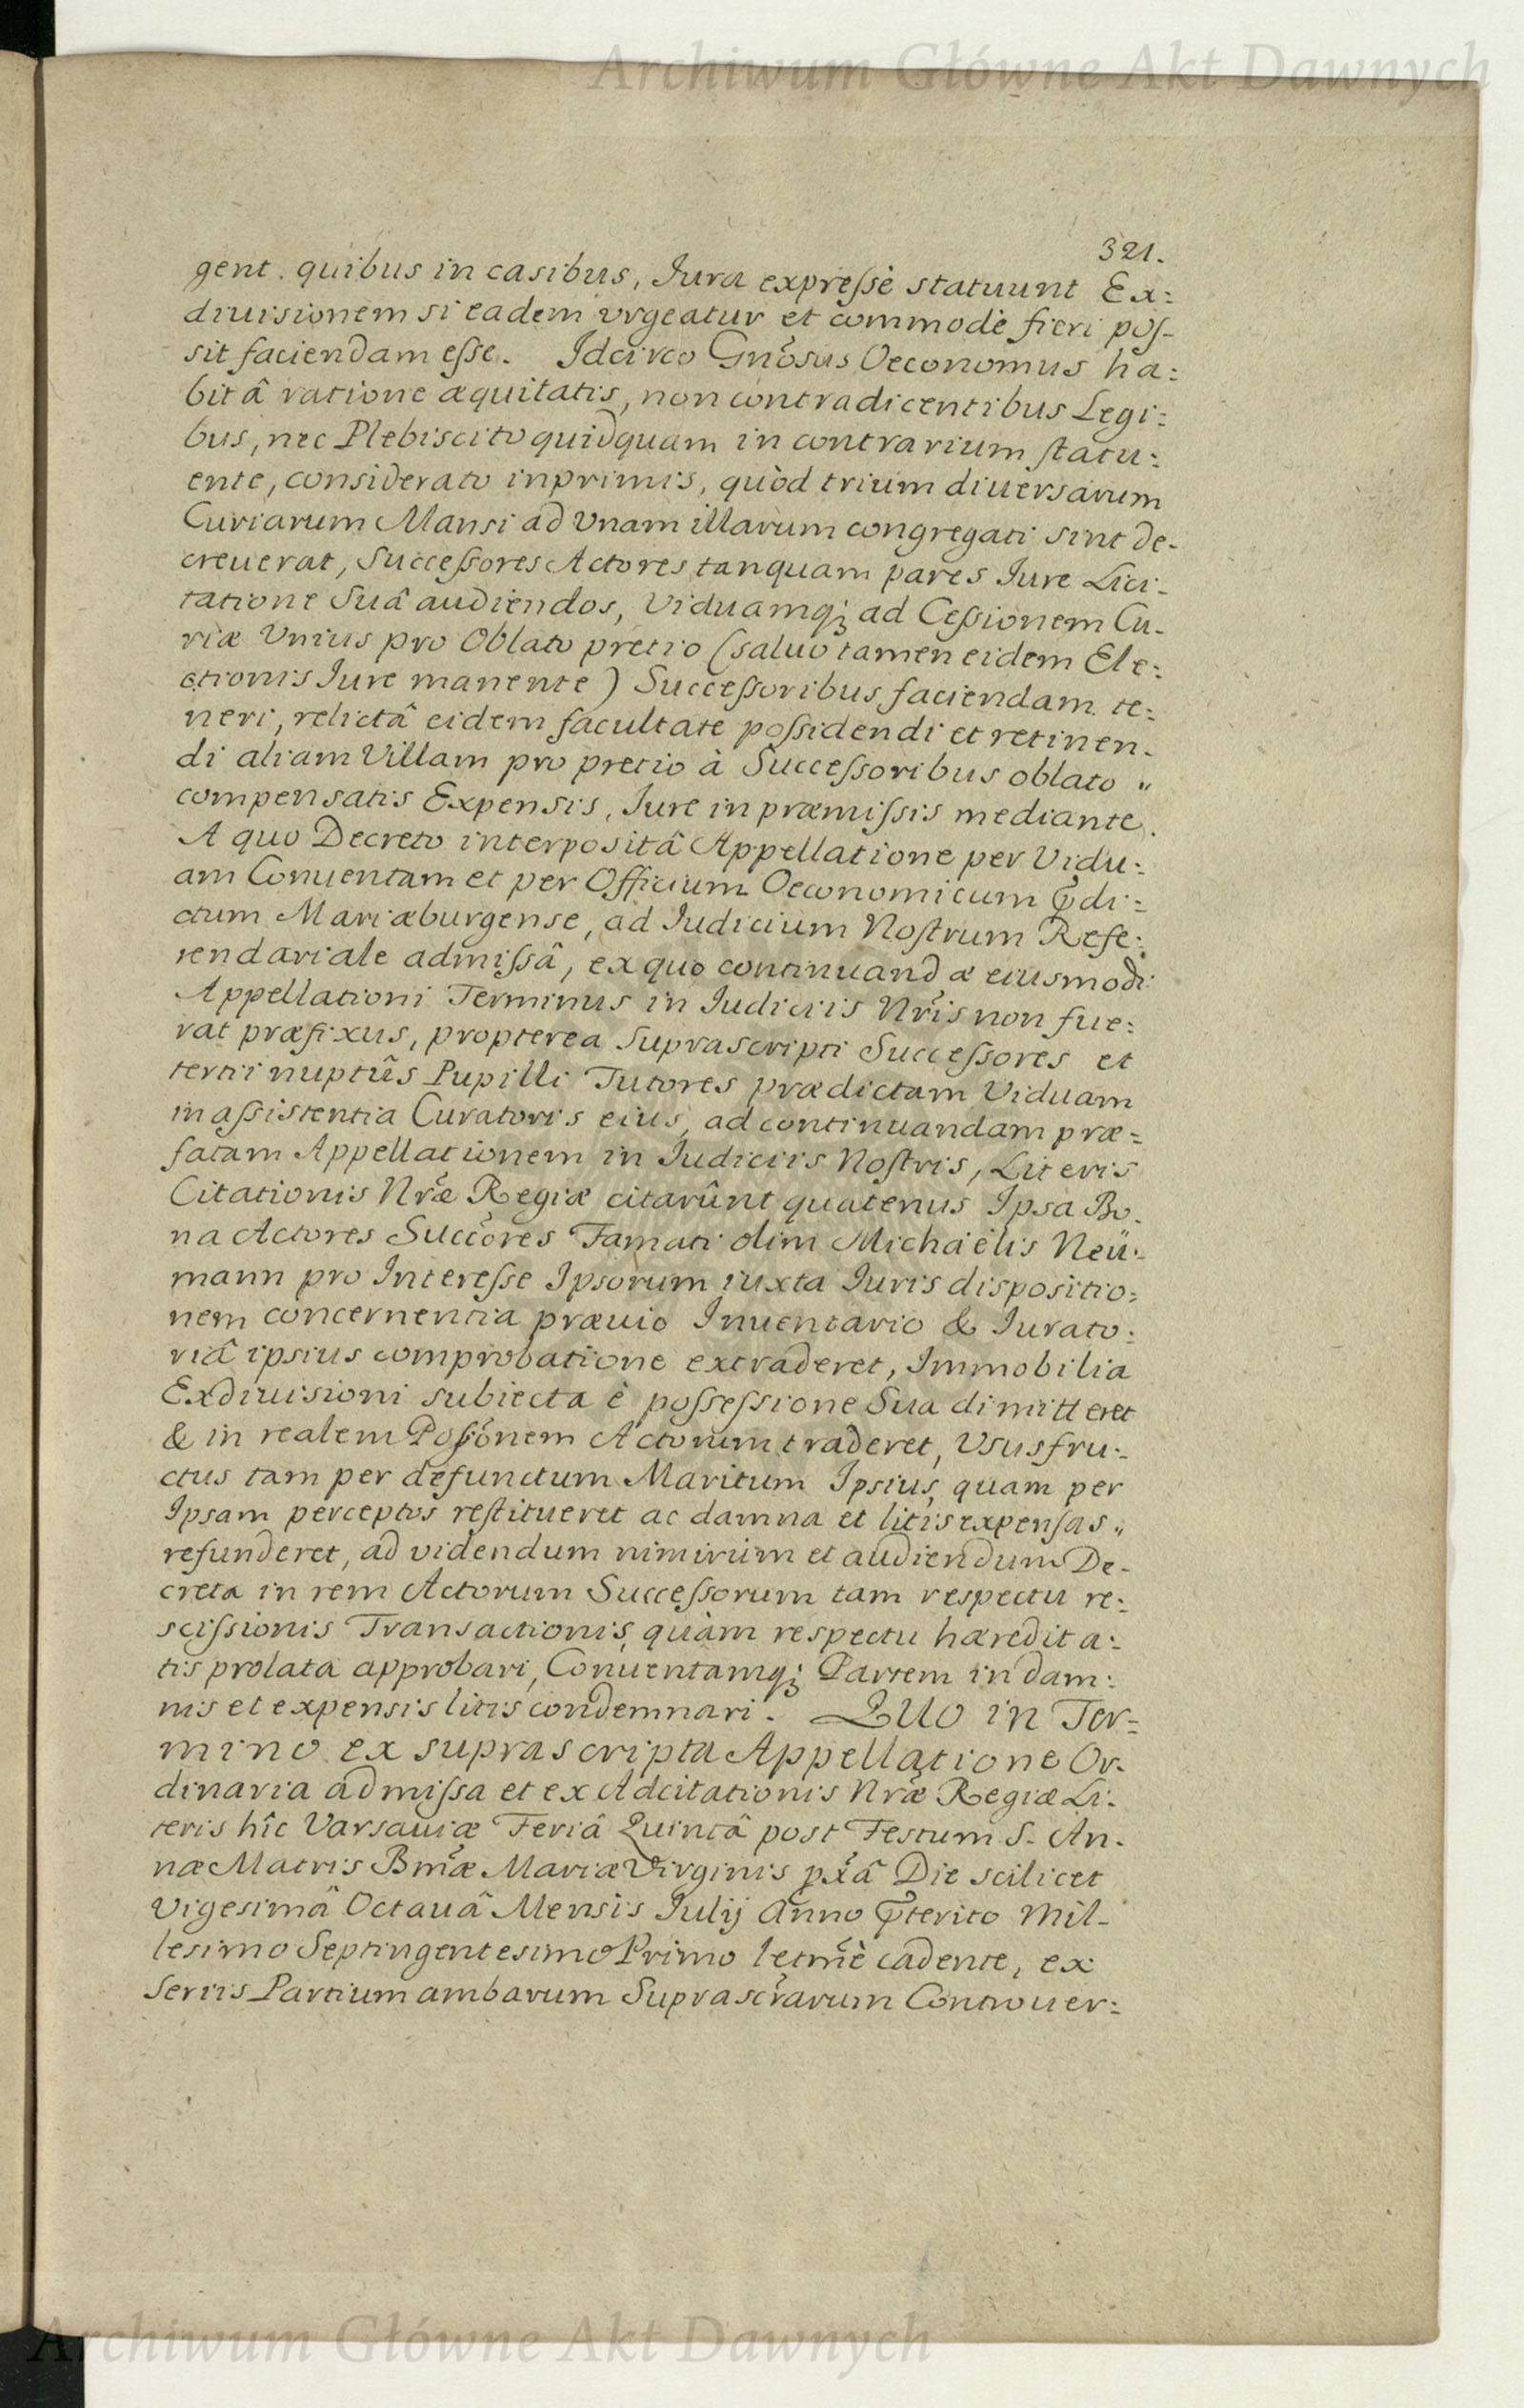 Archiwum Główne Akt Dawnych
321.
gent. quibus in casibus, Iura expreſsè statuunt Ex=
diuisionem si eadem vrgeatur et commodè fieri poſ-
sit faciendam eſse. Idcirco Gnõsus Oeconomus ha=
bitâ ratione æquitatis, non contradicentibus Legi=
bus, nec Plebiscito quidquam in contrarium ſtatu=
ente, considerato inprimis, quòd trium diuersarum
Curiarum Mansi ad Vnam illarum congregati sint de-
creuerat, Succeſsores Actores tanquam pares Iure Lici-
tatione Suâ audiendos, Viduamq; ad Ceſsionem Cu-
riæ Vnius pro Oblato pretio (saluo tamen eidem Ele=
ctionis Iure manente) Succeſsoribus faciendam te=
neri, relictâ eidem facultate poſsidendi et retinen-
di aliam Villam pro pretio à Succeſsoribus oblato "
compensatis Expensis, Iure in præmiſsis mediante.
A quo Decreto interpositâ Appellatione per Vidu=
am Conuentam et per Officium Oeconomicum p̃di=
ctum Mariæburgense, ad Iudicium Noſtrum Refe=
rendariale admiſsâ, ex quo continuandæ eiusmodi
Appellationi Terminus in Iudiciis Nr̃is non fue=
rat præfixus, propterea Suprascripti Succeſsores et
tertii nuptûs Pupilli Tutores prædictam Viduam
in aſsistentia Curatoris eius, ad continuandam præ=
fatam Appellationem in Iudiciis Noſtris, Literis
Citationis Nr̃æ Regiæ citarûnt quatenus Ipsa Bo-
na Actores Succ̃ores Famati olim Michaëlis Neü=
mann pro Intereſse Ipsorum iuxta Iuris dispositio=
nem concernentia præuio Inuentario & Iurato=
riâ ipsius comprobatione extraderet, Immobilia
Exdiuisioni subiecta è poſseſsione Sua dimitteret
& in realem Poſsõnem Actorum traderet, Vsusfru=
ctus tam per defunctum Maritum Ipsius, quam per
Ipsam perceptos reſtitueret ac damna et litis expenſas "
refunderet, ad videndum nimirùm et audiendum De-
creta in rem Actorum Succeſsorum tam respectu re=
sciſsionis Transactionis, quàm respectu hæredita=
tis prolata approbari, Conuentamq; Partem in dam=
nis et expensis litis condemnari. QUO in Ter=
mino ex suprascripta Appellatione Or-
dinaria admiſsa et ex Adcitationis Nr̃æ Regiæ Li-
teris hîc Varsauiæ Feriâ Quintâ post Festum S. An-
næ Matris Bm̃æ Mariæ Virginis px̃â Die scilicet
Vigesimâ Octauâ Mensis Iulij Anno p̃terito Mil-
lesimo Septingentesimo Primo lectm̃è cadente, ex
Seriis Partium ambarum Suprascr̃arum Controuer=
Archiwum Główne Akt Dawnych